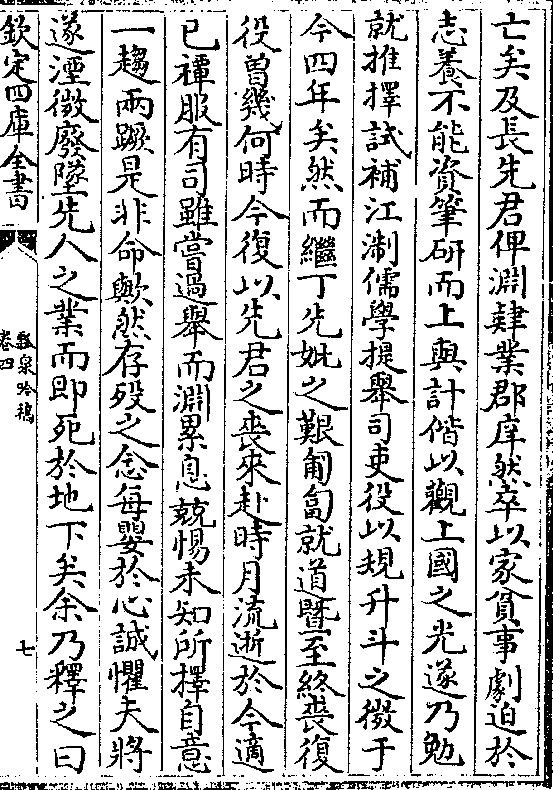 亡矣及長先君俾淵肄業郡庠然卒以家貧事劇迫於
志養不能資筆研而上與計偕以觀上國之光遂乃勉
就推擇試補江淛儒學提舉司吏役以規升斗之微于
今四年矣然而繼丁先妣之艱匍匐就道暨至終喪復
役曽幾何時今復以先君之喪來赴時月流逝於今適
已禫服有司雖嘗過舉而淵累息兢惕未知所擇自意
一趨兩蹶是非命歟然存殁之念每嬰於心誠懼夫將
遂湮微廢墜先人之業而即死於地下矣余乃釋之曰
欽定四庫全書
瓢泉吟稿
卷四
七